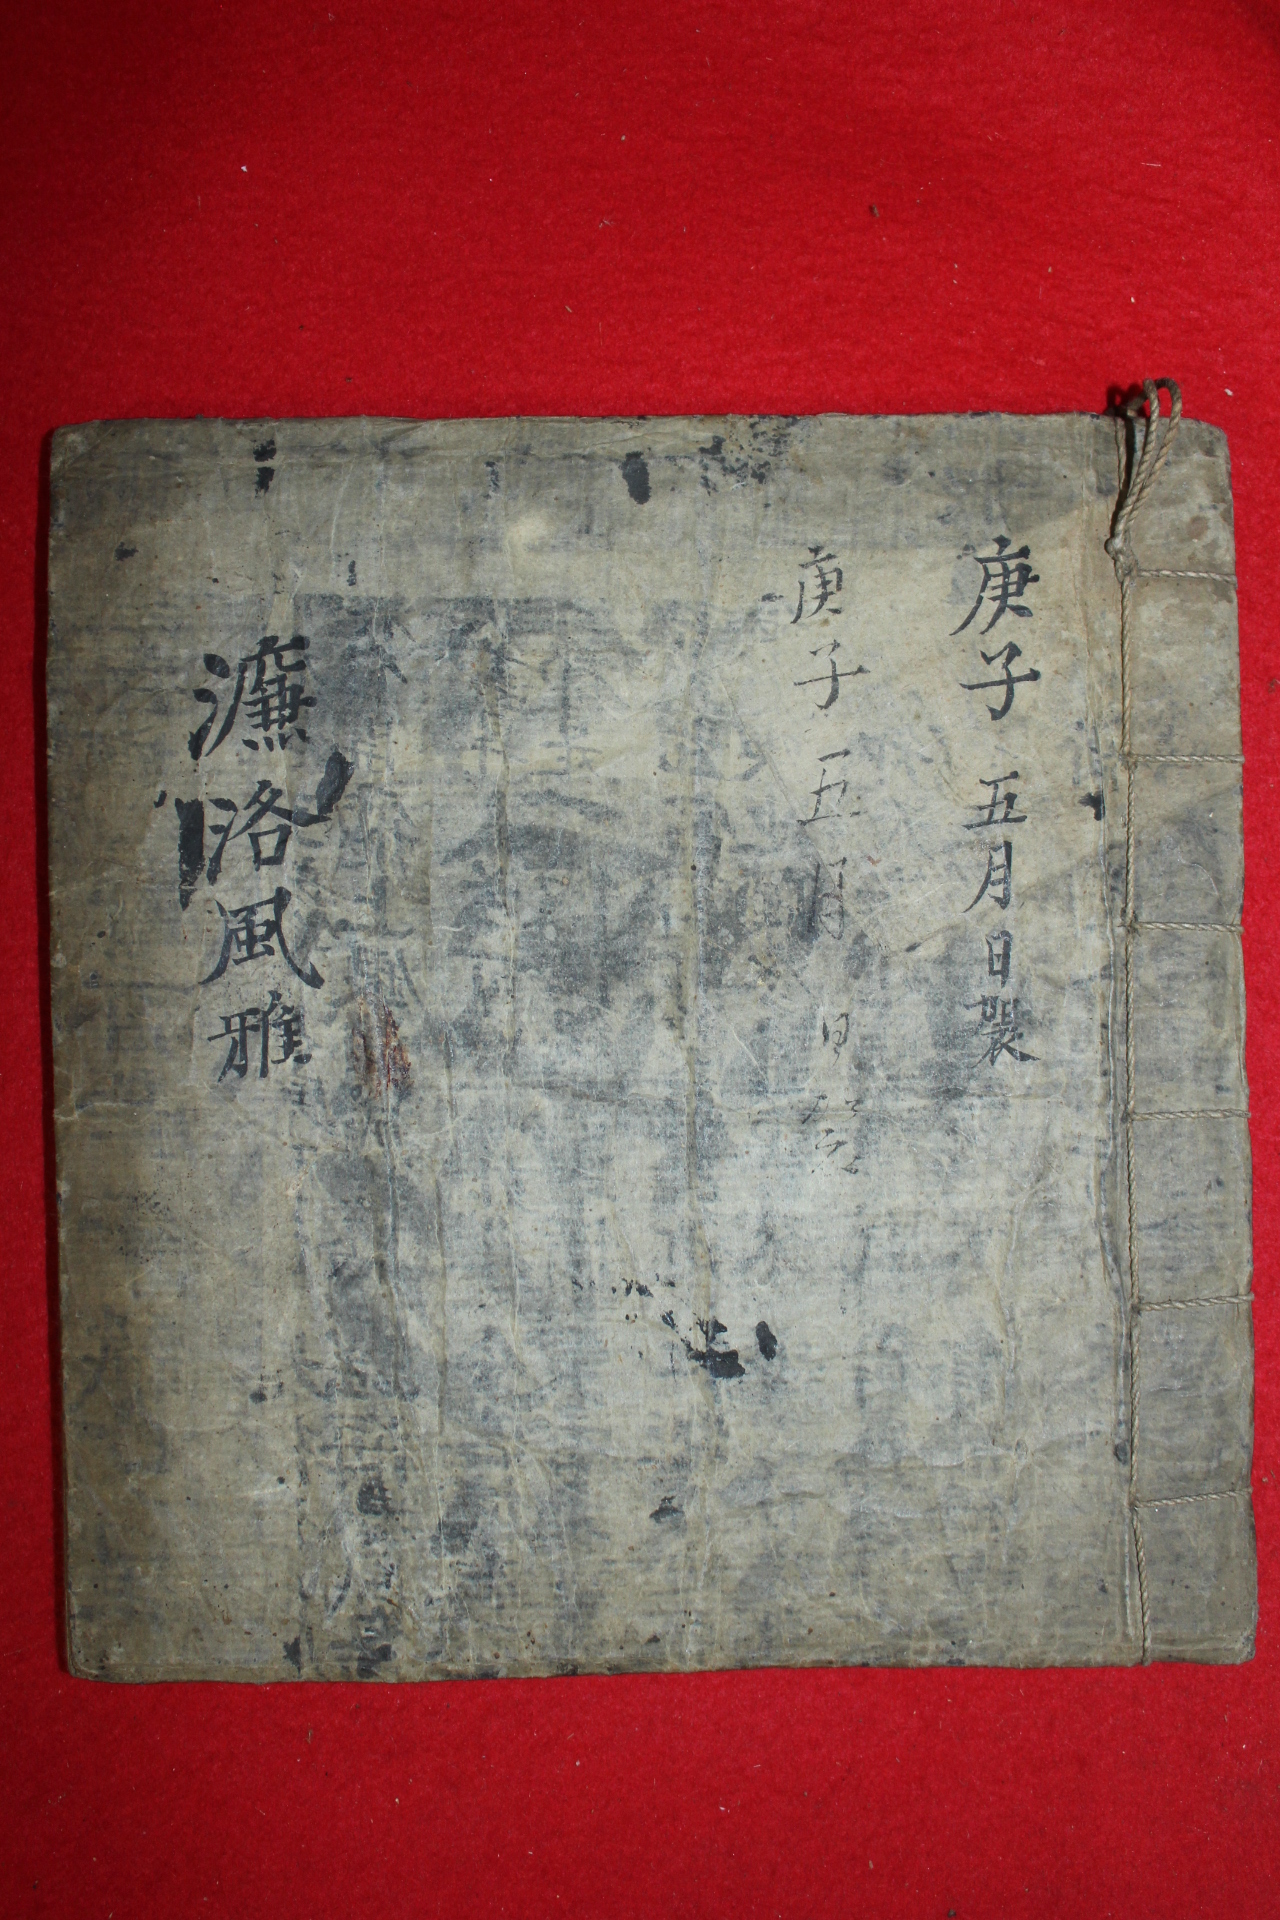 庚子五月日裝
庚子五月日
濂洛風雅